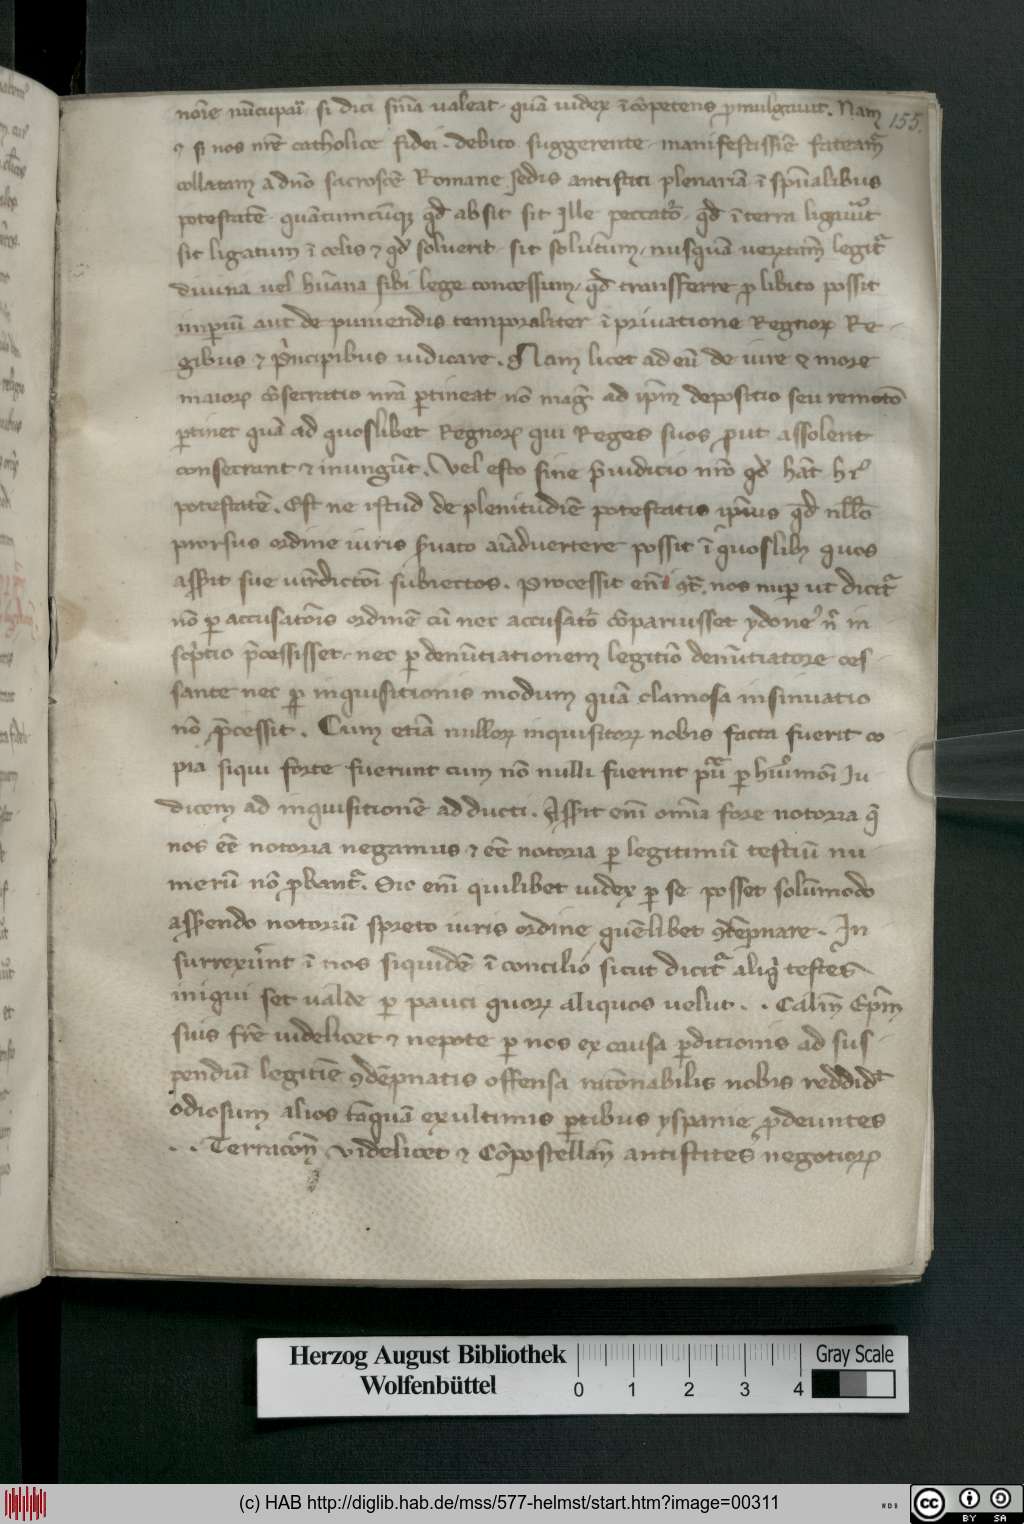 nōie nūcupari si dici sn̄ia ualeat quā iudex īcōpetens ꝓmulgauit. Nam
155.
⁊ si nos nr̄e catholice fidei debito suggerente manifestissīe fateamr̄
collatam a dn̄o sacroscē Romane sedis antistiti plenariā ī sp̄ualibus
potestatē quātumcūqꝫ qd̄ absit sit ille peccator̄ qd̄ ī terra ligauīt
sit ligatum ī celis ⁊ qd̄ soluerit sit solutum nusquā uerūtam̄ legitr̄
diuina uel hūana sibi lege concessum qd̄ transferre ꝓ libito possit
imꝑiū aut de puniendis temporaliter ī priuatione Regnoꝝ Re
gibus ⁊ p̄ncipibus iudicare. Nam licet ad eū de iure ⁊ more
maioꝝ cōsecratio nr̄a ꝑtineat nō maḡ ad ip̄m depositio seu remotō
ꝑtinet quā ad quoslibet Regnoꝝ qui Reges suos ꝓut assolent
consecrant ⁊ inungūt. Vel esto sine p̄iudicio nr̄o qd̄ hāt hꝰ
potestatē. Est ne istud de plenitudīe potestatis ip̄ius qd̄ nllō
prorsus ordine iuris s̄uato aīaduertere possit ī quoslibꝫ quos
ass̄it sue iur̄dictōi subiectos. Processit em̄ ꝯt nos nuꝑ ut dicitr̄
nō ꝑ accusatōis ordinē cū nec accusator̄ cōparuisset ydoneꝰ n̄ in
sc̄ptio p̄cessisset nec ꝑ denūtiationem legitīo denūtiatore ces
sante nec ꝑ inquisitionis modum quā clamosa insinuatio
nō p̄cessit. Cum etiā nulloꝝ inquisitoꝝ nobis facta fuerit co
pia siqui forte fuerunt cum nō nulli fuerint
dicem ad inquisitionē adducti. Ass̄it em̄ om̄ia fore notoria q̄
nos eē notoria negamus ⁊ eē notoria ꝑ legitimū testiū nu
merū nō ꝓbantr̄. Sic em̄ quilibet iudex ꝑ se posset solūmodo
ass̄endo notoriū spreto iuris ordine quēlibet ꝯdēpnare. In
surrexūnt ī nos siquidē ī concilio sicut dicitr̄ aliq̄ testes
iniqui set ualde ꝑ pauci quoꝝ aliquos uelut . . Calin̄ Ep̄m
suis fr̄e uidelicet ⁊ nepote ꝑ nos ex causa ꝑditionis ad sus
pendiū legitīe ꝯdēpnatis offensa racōnabilis nobis reddidit
odiosum alios tāquā ex ultimis ꝑtibus yspanie ꝓdeuntes
. . Terracōn̄ uidelicet ⁊ Cōpostellan̄ antistites negotioꝝ
Herzog August Bibliothek
Wolfenbüttel
0 1 2 3 4
Gray Scale
(c) HAB http://diglib.hab.de/mss/577-helmst/start.htm?image=00311
WDB
cc BY SA